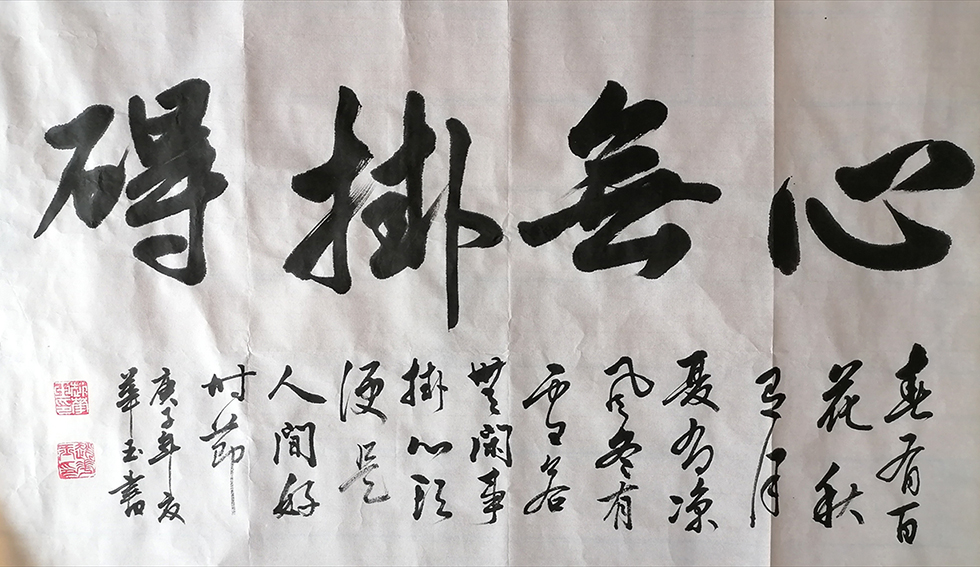 心無掛碍
春有百
花秋
有月
夏有凉
风冬有
雪若
無閑事
掛心头
便是
人間好
时節
庚子年夏
華玉書